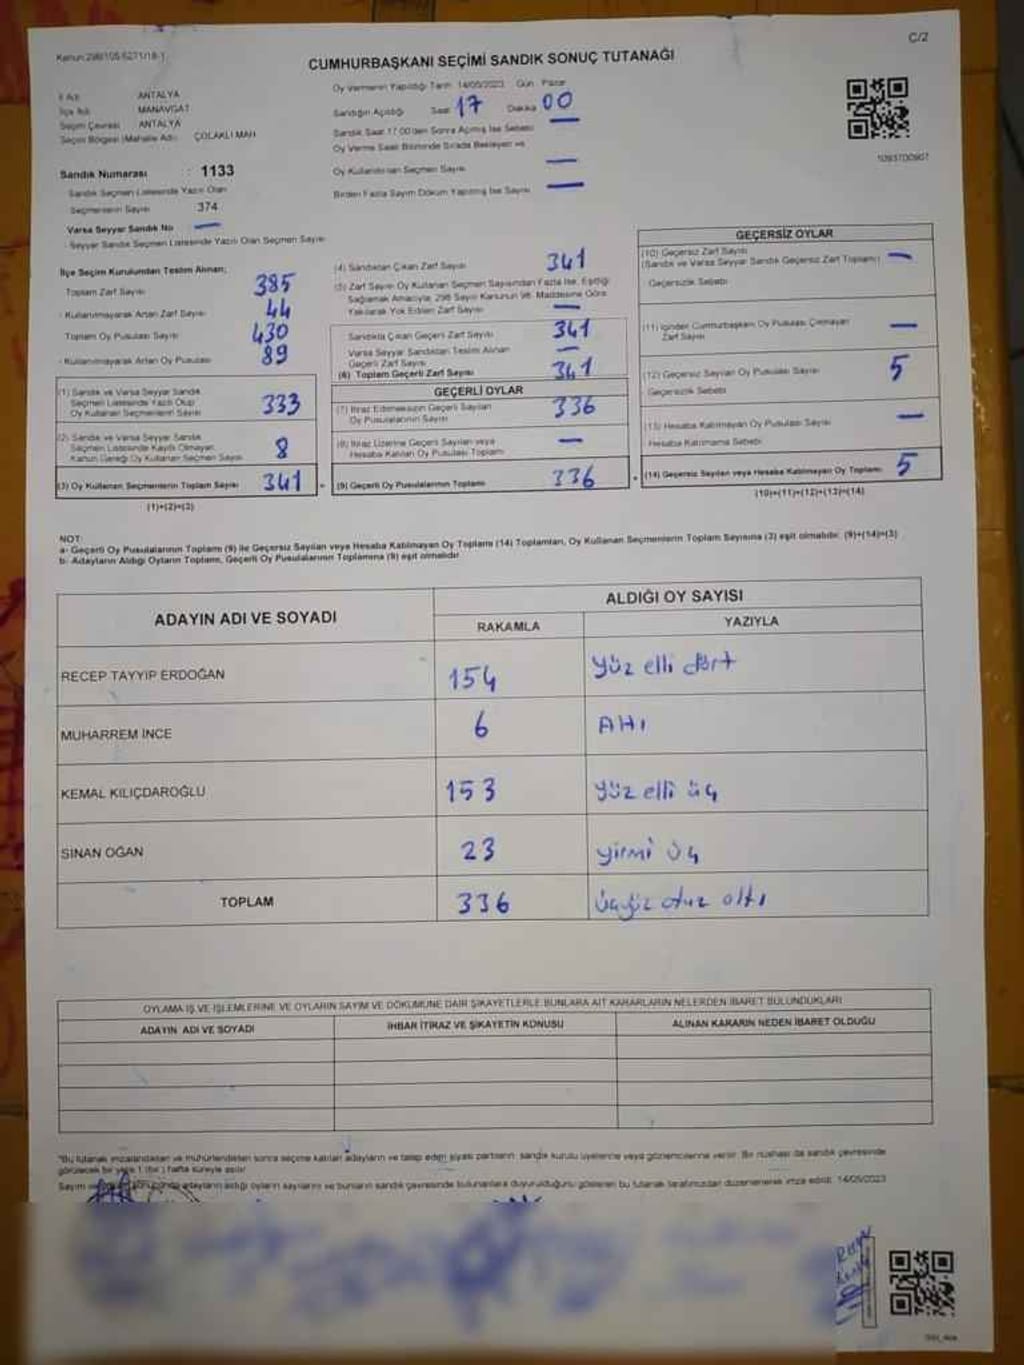 C/2
Kanun:298/105 6271/18-1
CUMHURBAŞKANI SEÇİMİ SANDIK SONUÇ TUTANAĞI
İl Adı : ANTALYA
İlçe Adı : MANAVGAT
Seçim Çevresi : ANTALYA
Seçim Bölgesi (Mahalle Adı) : ÇOLAKLI MAH
Sandık Numarası : 1133
Sandık Seçmen Listesinde Yazılı Olan
Seçmenlerin Sayısı : 374
Varsa Seyyar Sandık No —
- Seyyar Sandık Seçmen Listesinde Yazılı Olan Seçmen Sayısı
Oy Vermenin Yapıldığı Tarih 14/05/2023 Gün Pazar
Sandığın Açıldığı Saat 17 Dakika 00
Sandık Saat 17.00'den Sonra Açılmış İse Sebebi —
Oy Verme Saati Bitiminde Sırada Bekleyen ve
Oy Kullandırılan Seçmen Sayısı —
Birden Fazla Sayım Döküm Yapılmış İse Sayısı —
1093700907
İlçe Seçim Kurulundan Teslim Alınan;
Toplam Zarf Sayısı 385
- Kullanılmayarak Artan Zarf Sayısı 44
Toplam Oy Pusulası Sayısı 430
- Kullanılmayarak Artan Oy Pusulası 89
(1) Sandık ve Varsa Seyyar Sandık
Seçmen Listesinde Yazılı Olup
Oy Kullanan Seçmenlerin Sayısı 333
(2) Sandık ve Varsa Seyyar Sandık
Seçmen Listesinde Kayıtlı Olmayan
Kanun Gereği Oy Kullanan Seçmen Sayısı 8
(3) Oy Kullanan Seçmenlerin Toplam Sayısı 341
(1)+(2)=(3)
(4) Sandıktan Çıkan Zarf Sayısı 341
(5) Zarf Sayısı Oy Kullanan Seçmen Sayısından Fazla İse, Eşitliği
Sağlamak Amacıyla, 298 Sayılı Kanunun 98. Maddesine Göre
Yakılarak Yok Edilen Zarf Sayısı —
Sandıkta Çıkan Geçerli Zarf Sayısı 341
Varsa Seyyar Sandıktan Teslim Alınan
Geçerli Zarf Sayısı —
(6) Toplam Geçerli Zarf Sayısı 341
GEÇERLİ OYLAR
(7) İtiraz Edilmeksizin Geçerli Sayılan
Oy Pusulalarının Sayısı 336
(8) İtiraz Üzerine Geçerli Sayılan veya
Hesaba Katılan Oy Pusulası Toplamı —
(9) Geçerli Oy Pusulalarının Toplamı 336
GEÇERSİZ OYLAR
(10) Geçersiz Zarf Sayısı
(Sandık ve Varsa Seyyar Sandık Geçersiz Zarf Toplamı) —
Geçersizlik Sebebi
(11) İçinden Cumhurbaşkanı Oy Pusulası Çıkmayan
Zarf Sayısı —
(12) Geçersiz Sayılan Oy Pusulası Sayısı 5
Geçersizlik Sebebi
(13) Hesaba Katılmayan Oy Pusulası Sayısı —
Hesaba Katılmama Sebebi
(14) Geçersiz Sayılan veya Hesaba Katılmayan Oy Toplamı 5
(10)+(11)+(12)+(13)=(14)
NOT:
a- Geçerli Oy Pusulalarının Toplamı (9) ile Geçersiz Sayılan veya Hesaba Katılmayan Oy Toplamı (14) Toplamları, Oy Kullanan Seçmenlerin Toplam Sayısına (3) eşit olmalıdır. (9)+(14)=(3)
b- Adayların Aldığı Oyların Toplamı, Geçerli Oy Pusulalarının Toplamına (9) eşit olmalıdır
ADAYIN ADI VE SOYADI
ALDIĞI OY SAYISI
RAKAMLA YAZIYLA
RECEP TAYYİP ERDOĞAN 154 Yüz elli dört
MUHARREM İNCE 6 AHI
KEMAL KILIÇDAROĞLU 153 Yüz elli üç
SİNAN OĞAN 23 yirmi üç
TOPLAM 336 üçyüz otuz altı
OYLAMA İŞ VE İŞLEMLERİNE VE OYLARIN SAYIM VE DÖKÜMÜNE DAİR ŞİKAYETLERLE BUNLARA AİT KARARLARIN NELERDEN İBARET BULUNDUKLARI
ADAYIN ADI VE SOYADI İHBAR İTİRAZ VE ŞİKAYETİN KONUSU ALINAN KARARIN NEDEN İBARET OLDUĞU
"Bu tutanak imzalandıktan ve mühürlendikten sonra seçime katılan adayların ve talep eden siyasi partilerin sandık kurulu üyelerine veya gözlemcilerine verilir. Bir nüshası da sandık çevresinde
görülecek bir yere 1 (bir) hafta süreyle asılır.
Sayım ve adayların aldığı oyların sayılarını ve bunların sandık çevresinde bulunanlara duyurulduğunu gösteren bu tutanak tarafımızdan düzenlenerek imza edildi. 14/05/2023